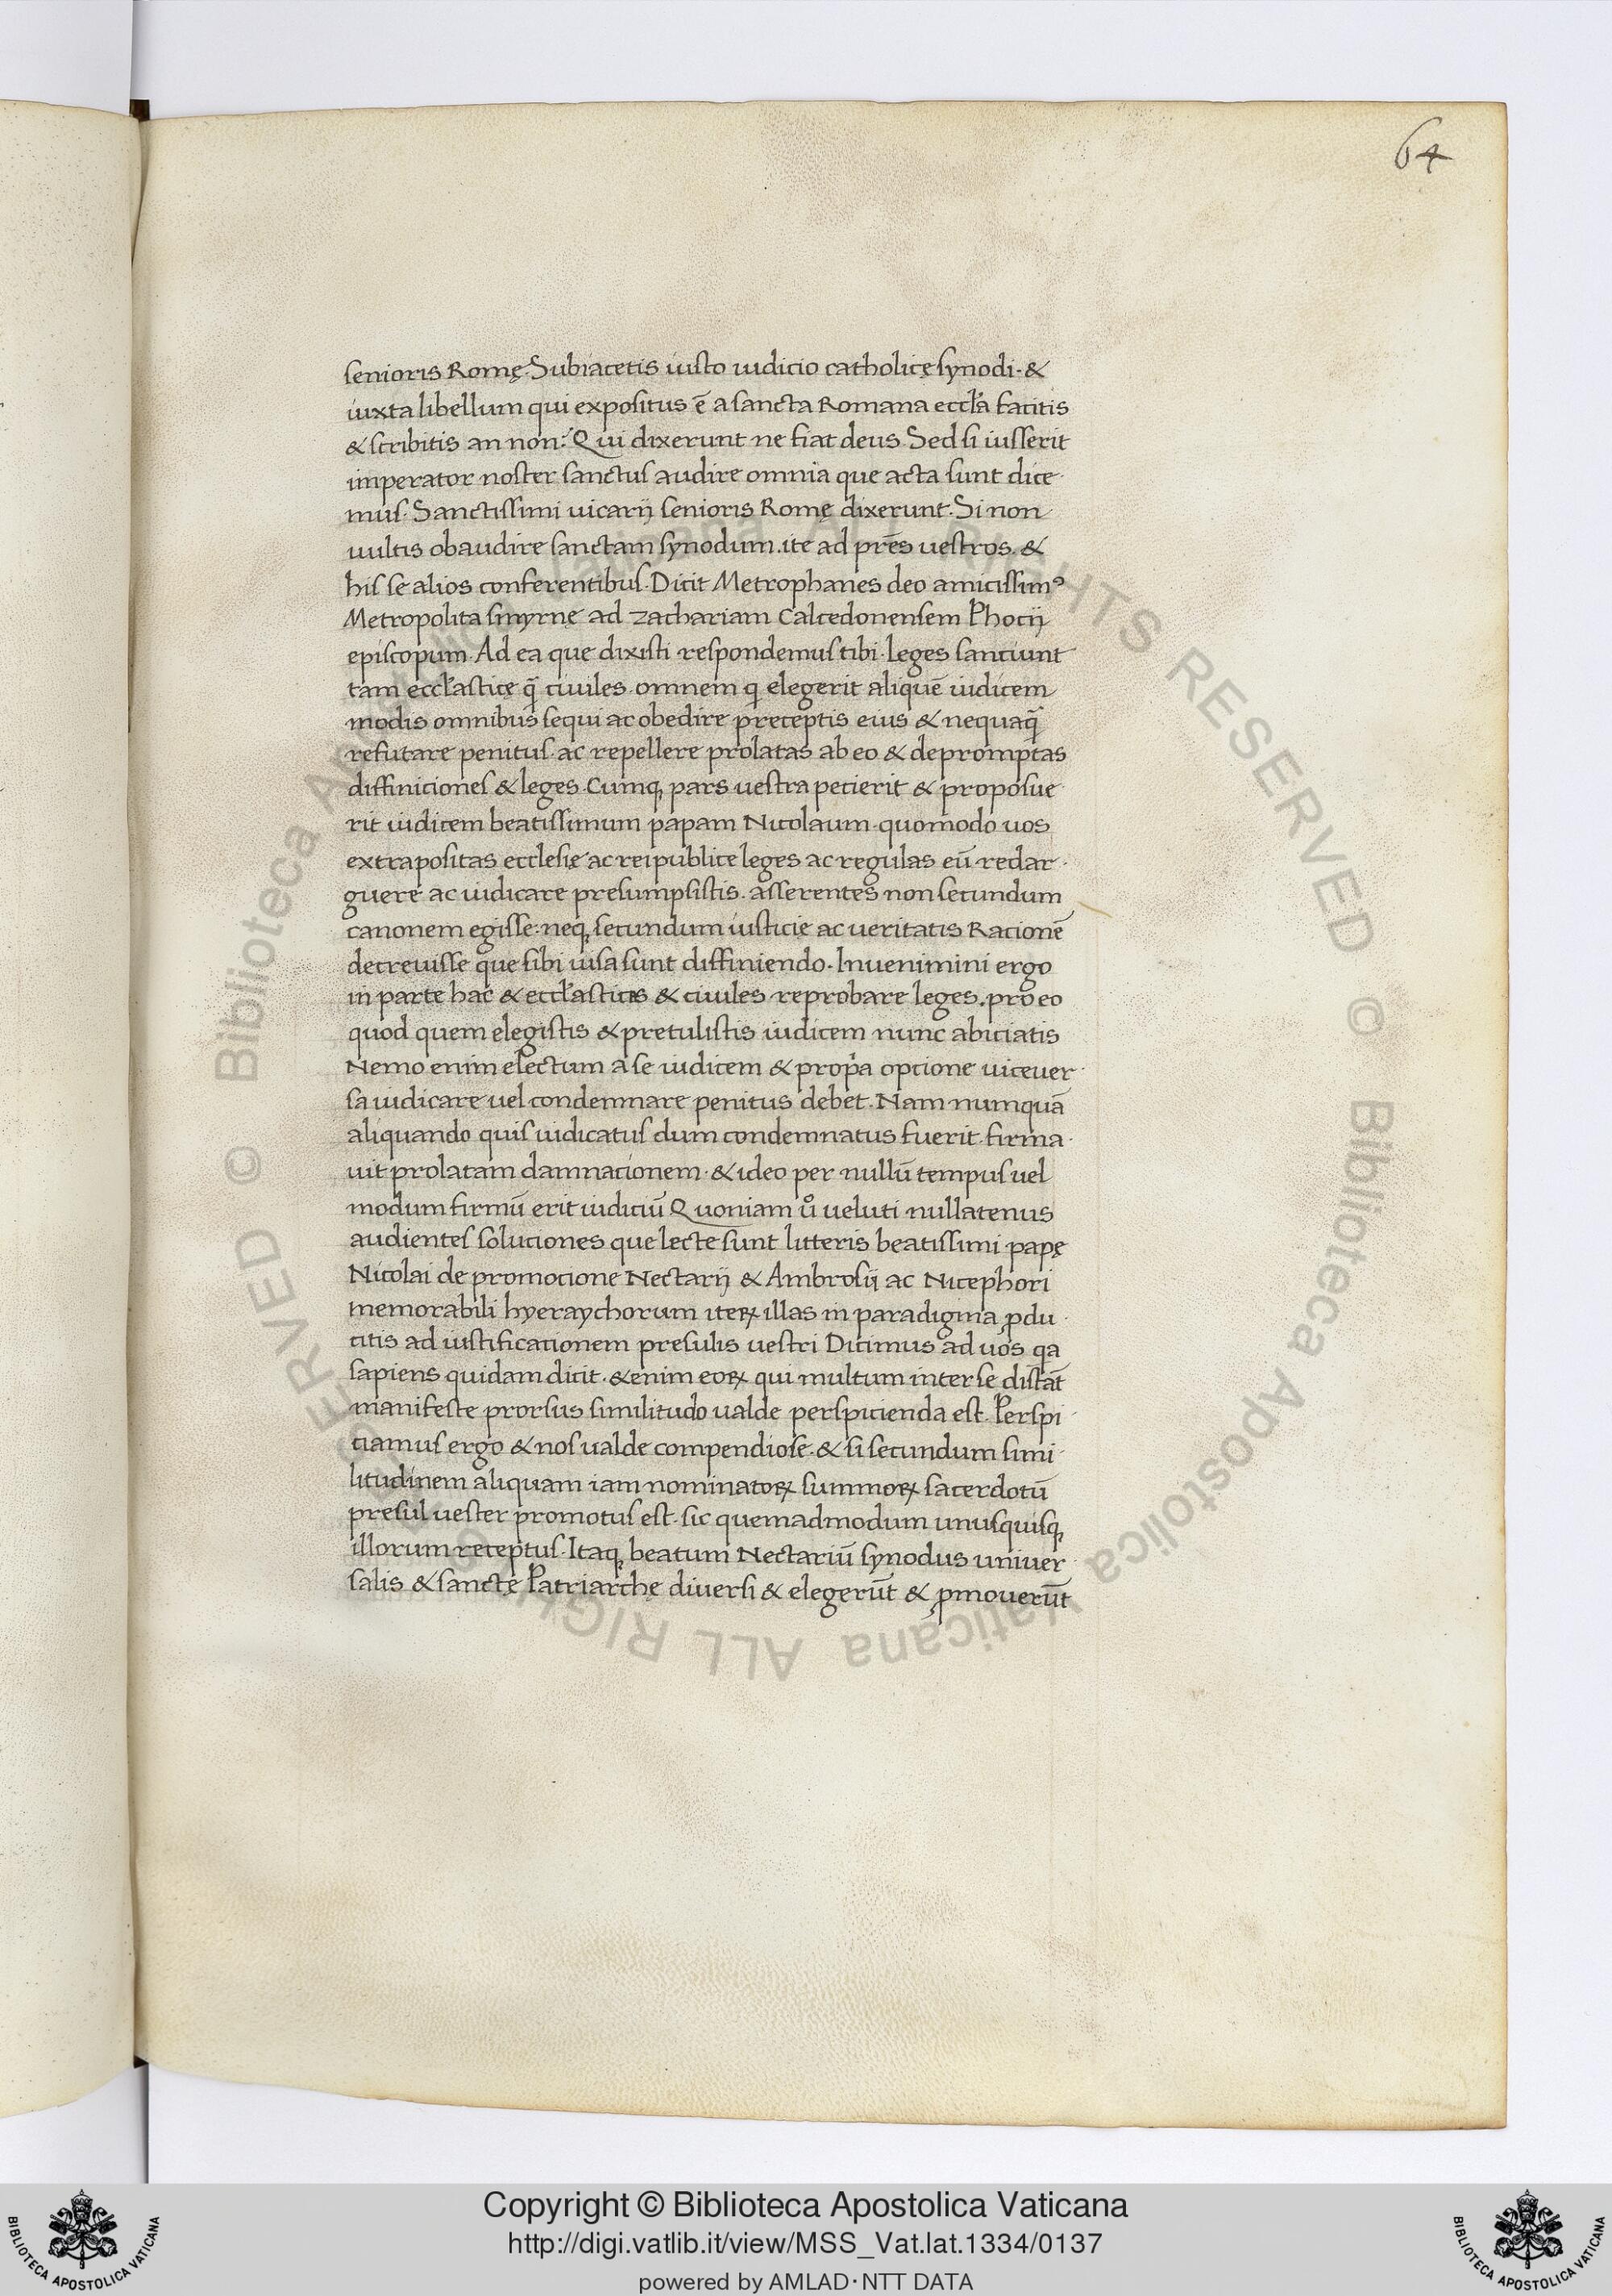 64
senioris Romę. Subiacetis iusto iudicio catholicę synodi. &
iuxta libellum qui expositus ē a sancta Romana eccľa facitis
& scribitis an non: Qui dixerunt ne fiat deus. Sed si iusserit
imperator noster sanctus audire omnia que acta sunt dice
mus. Sanctissimi uicarij senioris Romę dixerunt. Si non
uultis obaudire sanctam synodum. ite ad prēs uestros. &
his se alios conferentibus. Dicit Metrophanes deo amicissimꝰ
Metropolita smyrnę ad zachariam Calcedonensem Phocij
episcopum. Ad ea que dixisti respondemus tibi. Leges sanciunt
tam eccľasticę q̃ ciuiles. omnem q elegerit aliquē iudicem
modis omnibus sequi ac obedire preceptis eius & nequaq̃
refutare penitus. ac repellere prolatas ab eo & depromptas
diffiniciones & leges. Cumq; pars uestra pecierit & proposue
rit iudicem beatissimum papam Nicolaum. quomodo uos
extrapositas ecclesię ac reipublice leges ac regulas eū redar
guere ac iudicare presumpsistis. asserentes non secundum
canonem egisse: neq; secundum iusticię ac ueritatis Racionē
decreuisse que sibi uisa sunt diffiniendo. Inuenimini ergo
in parte hac & eccľasticas & ciuiles reprobare leges. pro eo
quod quem elegistis & pretulistis iudicem nunc abiciatis
Nemo enim electum a se iudicem & propͥa opcione uiceuer
sa iudicare uel condemnare penitus debet. Nam numquā
aliquando quis iudicatus dum condemnatus fuerit. firma
uit prolatam damnacionem. & ideo per nullū tempus uel
modum firmū erit iudiciū Quoniam uͦ ueluti nullatenus
audientes soluciones que lecte sunt litteris beatissimi papę
Nicolai de promocione Nectarij & Ambrosij ac Nicephori
memorabili hyeraychorum iteꝝ illas in paradigma ꝓdu
citis ad iustificationem presulis uestri Dicimus ad uos qa
sapiens quidam dicit. & enim eoꝝ qui multum inter se distāt
manifeste prorsus similitudo ualde perspicienda est. Perspi
ciamus ergo & nos ualde compendiose. & si secundum simi
litudinem aliquam iam nominatoꝝ summoꝝ sacerdotū
presul uester promotus est. sic quemadmodum unusquisq;
illorum receptus. Itaq; beatum Nectariū synodus uniuer
salis & sanctę Patriarchę diuersi & elegerūt & ꝓmouerūt
© Biblioteca Apostolica Vaticana ALL RIGHTS RESERVED © Biblioteca Apostolica Vaticana ALL RIGHTS RESERVED
BIBLIOTECA APOSTOLICA VATICANA
Copyright © Biblioteca Apostolica Vaticana
http://digi.vatlib.it/view/MSS_Vat.lat.1334/0137
powered by AMLAD·NTT DATA
BIBLIOTECA APOSTOLICA VATICANA